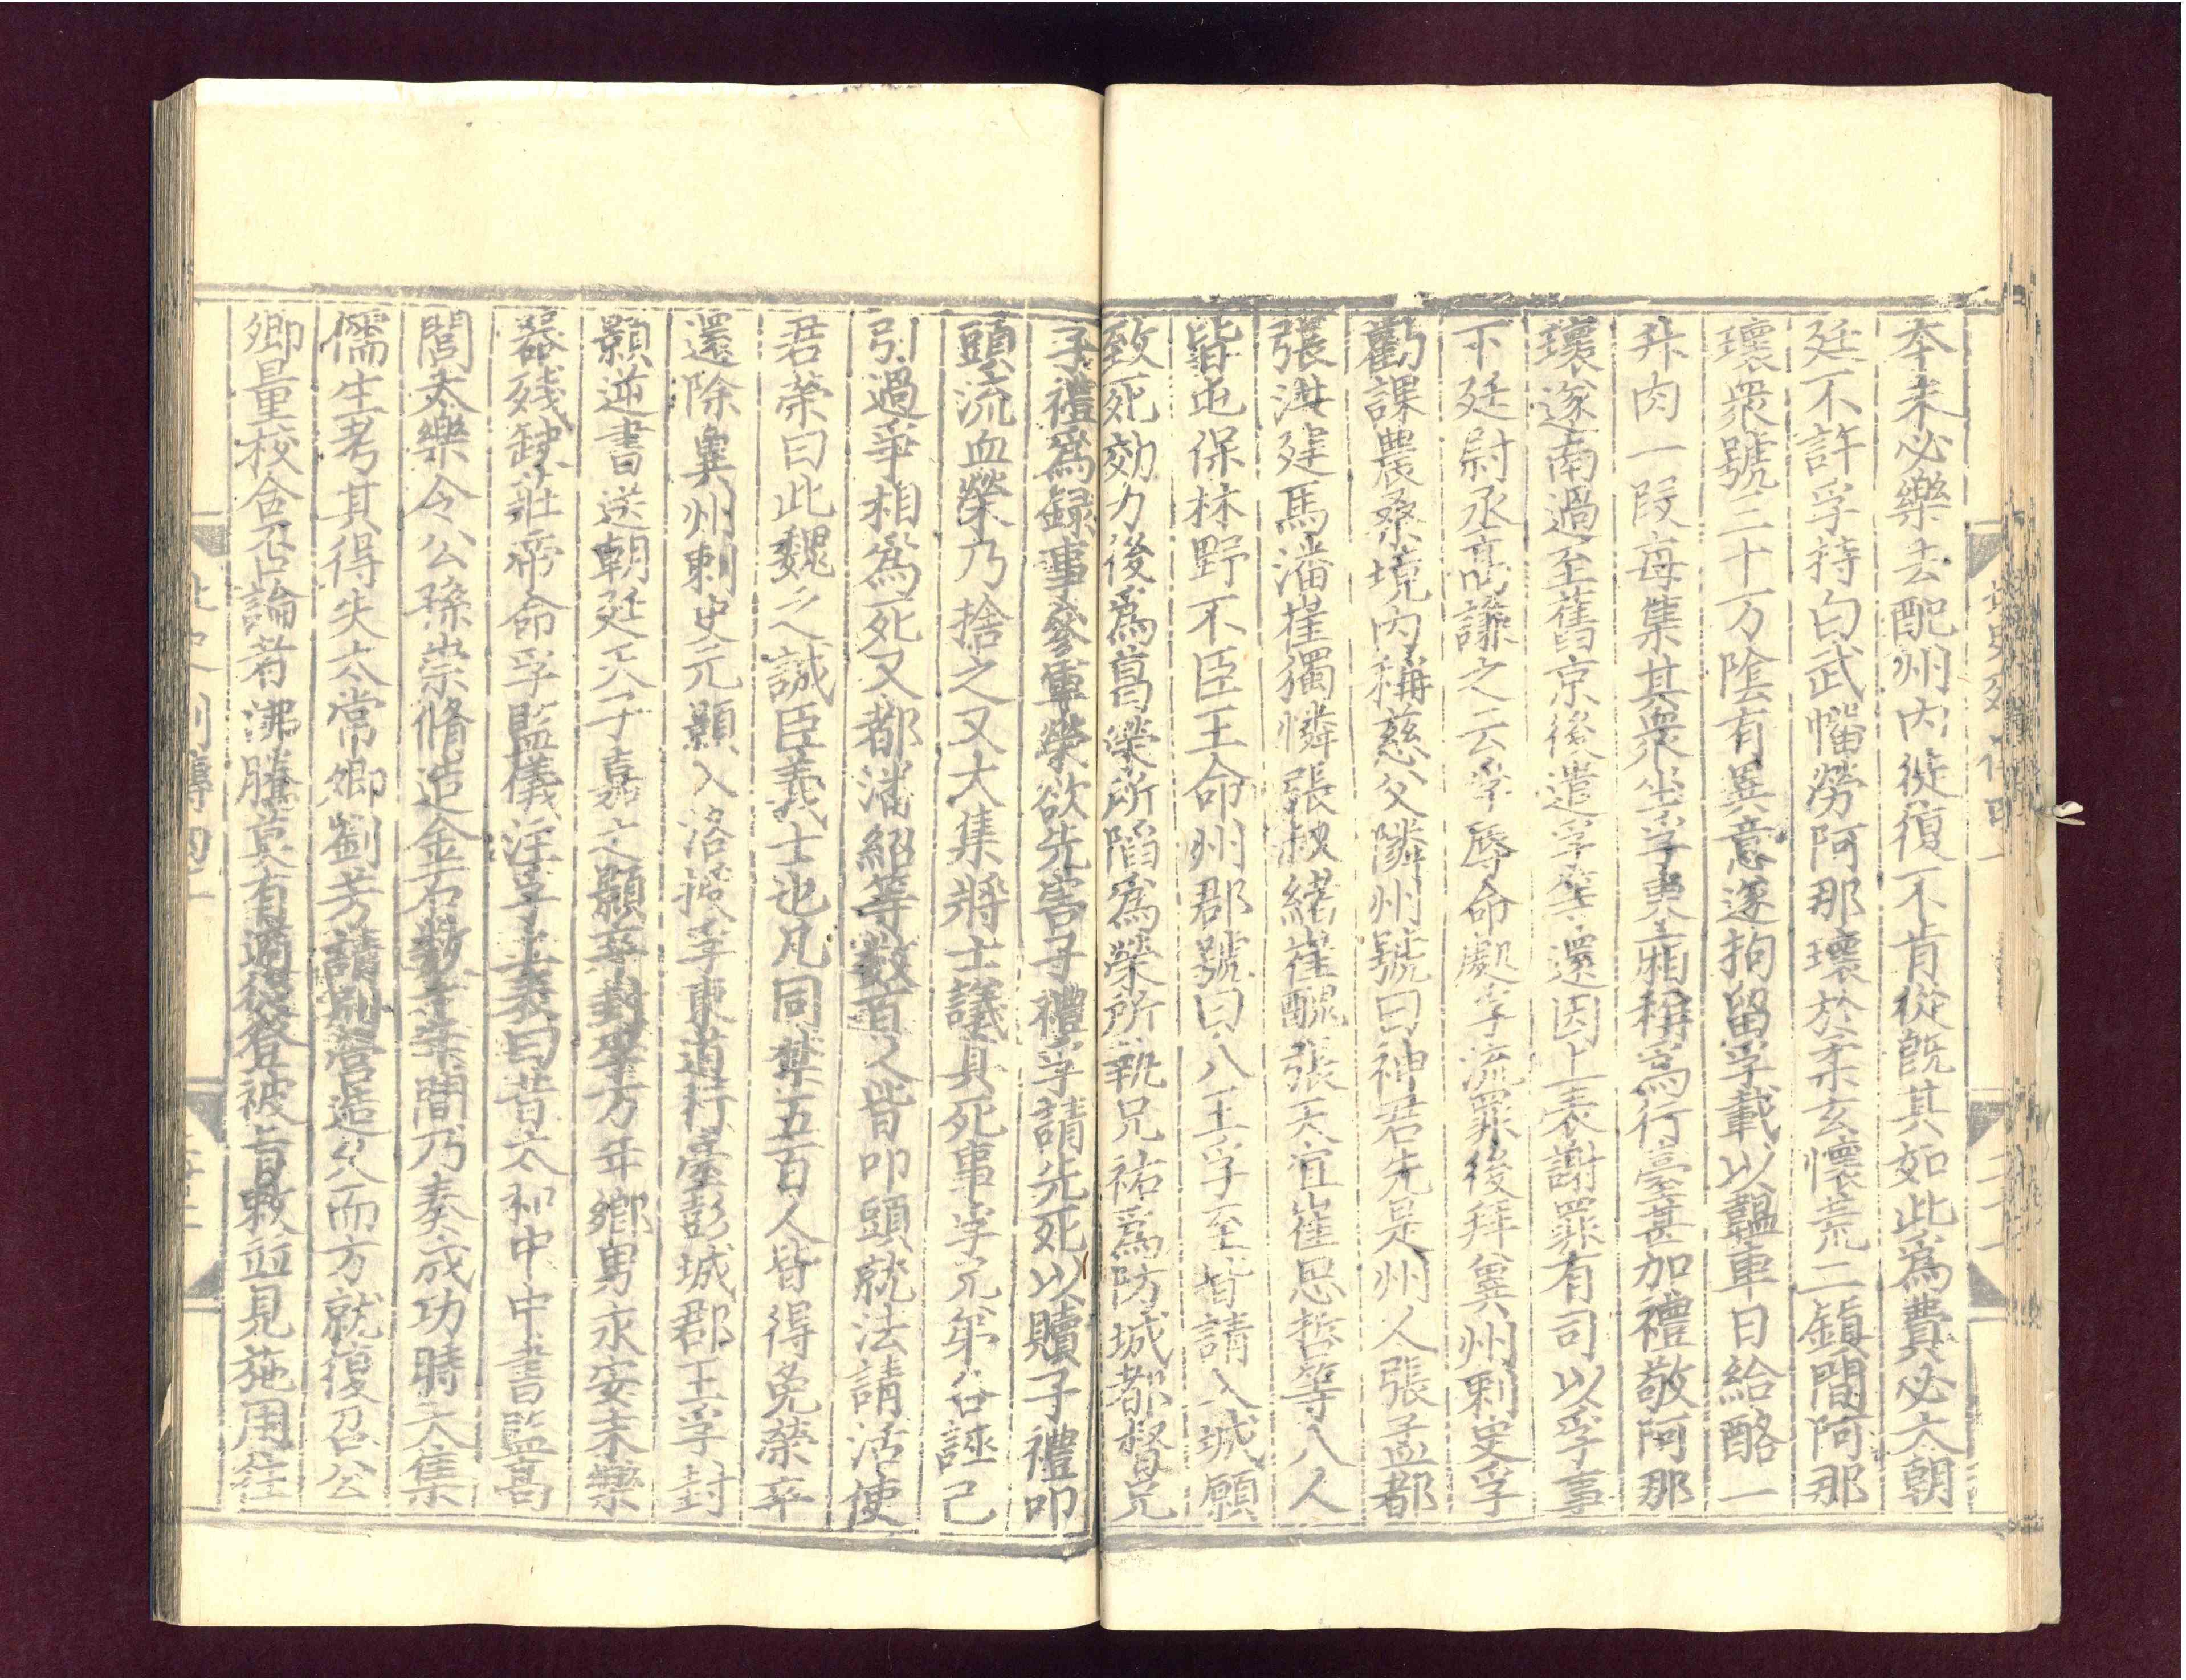 本未必樂去配州內徙復不肯從旣其如此爲費必大朝
廷不許孚持白武幡勞阿那瓌於柔玄懷荒二鎮間阿那
瓌衆號三十万陰有異意遂拘留孚載以轀車日給酪一
升肉一段每集其衆坐孚東廂稱爲行臺甚加禮敬阿那
瓌遂南過至舊京後遣孚等還因上表謝罪有司以孚事
下廷尉丞高謙之云孚辱命處孚流罪後拜兾州刺史孚
勸課農桑境內稱慈父隣州號曰神君先是州人張孟都
張洪建馬潘崔獨憐張叔緒崔醜張天宜崔思哲等八人
皆屯保林野不臣王命州郡號曰八王孚至皆請入城願
致死効力後爲葛榮所陷爲榮所執兄祐爲防城都督兄
子禮爲録事參軍榮欲先害子禮孚請先死以贖子禮叩
頭流血榮乃捨之又大集將士議其死事孚兄弟各誣己
引過爭相爲死又都潘紹等數百人皆叩頭就法請活使
君榮曰此魏之誠臣義士也凡同禁五百人皆得免榮卒
還除兾州刺史元顥入洛授孚東道行臺彭城郡王孚封
顥逆書送朝廷天子嘉之顥平封孚万年鄉男永安末樂
器殘缺莊帝命孚監儀注孚上表曰昔太和中中書監高
閭太樂令公孫崇脩造金石數十年間乃奏成功時大集
儒生考其得失太常卿劉芳請別營造久而方就復召公
卿量校合否論者沸騰莫有適從登被旨敕並見施用往